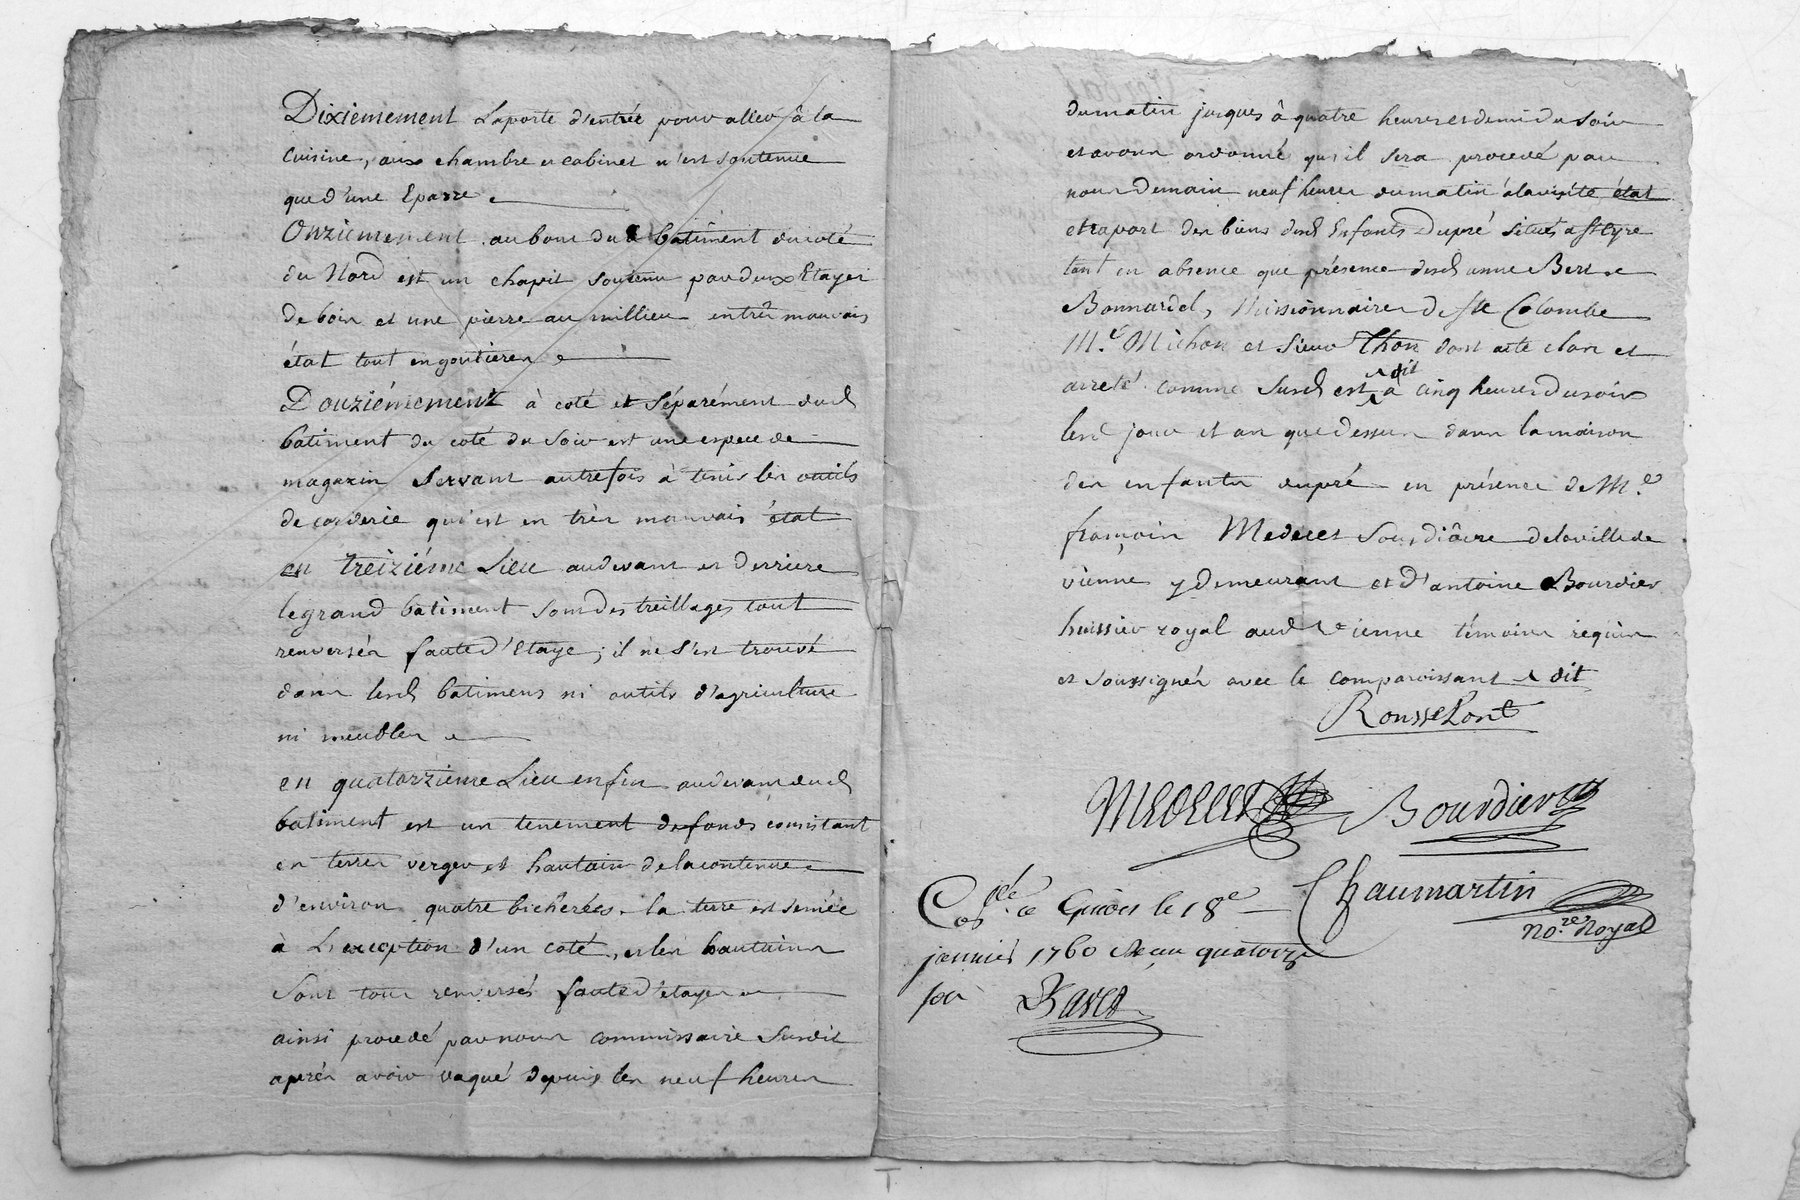 Dixiemement Laporte d'entrée pour aller à la
Cuisine, aux chambre et cabinet n'est soutenue
que d'une Eparre
Onziemement au bout du bâtiment du coté
du Nord est un chapit soutenu par deux Etayes
de bois et une pierre au millieu en très mauvais
état tout en goutieres
Douziémement à coté et Séparément dud
batiment du coté du Soir est une espece de
magazin Servant autrefois à tenir les outils
de corderie qui est en très mauvais état
en treiziéme Lieu au devant et derriere
le grand batiment sont des treillages tout
renversés faute d'Etaye; il ne s'est trouvé
dans lesd batimens ni outils d'agriculture
ni meubles
en quatorzieme Lieu enfin au devant dud
batiment est un tenement de fonds consistant
en terres verger et hautains de la contenue
d'environ quatre bicherées. la terre est semée
à L'exception d'un coté, et les hautains
Sont tous renversés faute d'etayes
ainsi procedé par nous commissaire Susdit
aprés avoir vaqué depuis les neuf heures
du matin jusques à quatre heures et demi du Soir
et avons ordonné qu'il sera procedé par
nous Demain neuf heures du matin à la visite état
et raport des biens desd Enfants Dupré situés a St Cyre
tant en absence que présence desd anne Bert
Bonnardel, Missionnaires de Ste Colombe
M.e Michon et Sieur Thon dont acte clos et
arreté comme Susd est ^ à cinq heures du soir
^ dit
lesd jour et an que dessus dans la maison
des enfants dupré en présence de M.e
françois Mederet Soudiâcre de la ville de
vienne y demeurant et d'antoine Bourdier
huissier royal aud Vienne témoins requis
et soussignés avec le comparoissant ^ dit
Rousselont
Mederet Bourdier
Chaumartin
no.re Royal
Con.olé a Givors le 18e
janvier 1760 Reçu quatorze
sol Bavet